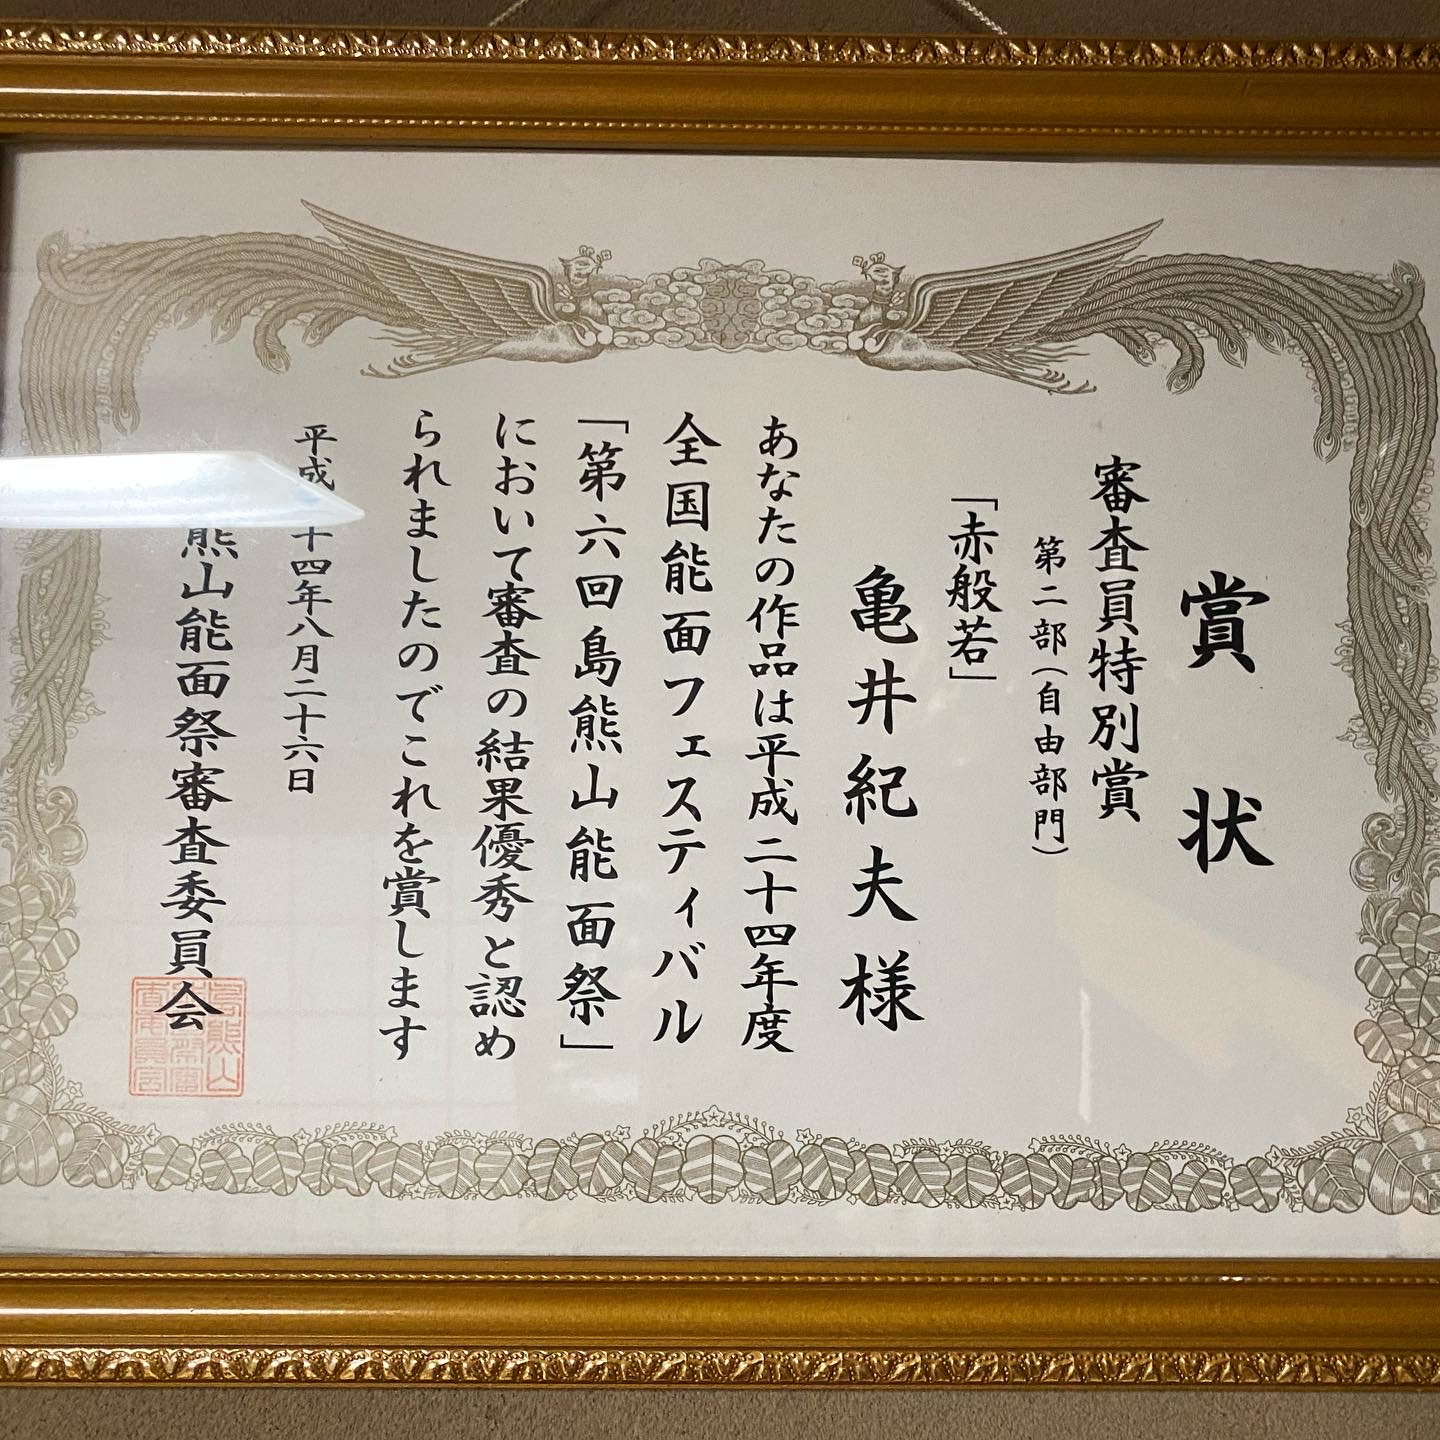 賞状
審査員特別賞
第二部(自由部門)
「赤般若」
亀井紀夫様
あなたの作品は平成二十四年度
全国能面フェスティバル
「第六回島熊山能面祭」
において審査の結果優秀と認め
られましたのでこれを賞します
平成 十四年八月二十六日
熊山能面祭審査委員会